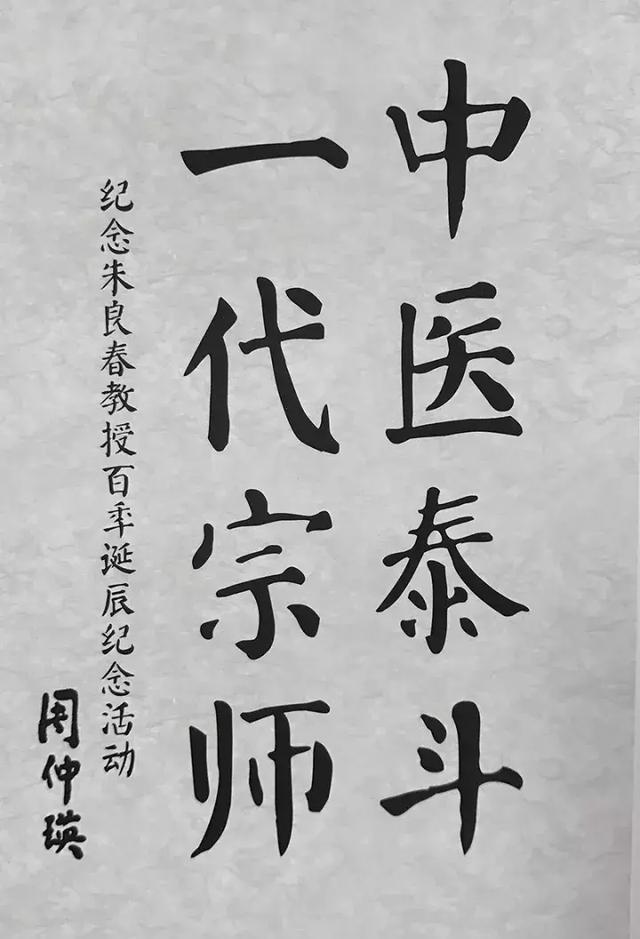 中医泰斗
一代宗师
纪念朱良春教授百年诞辰纪念活动
周仲瑛